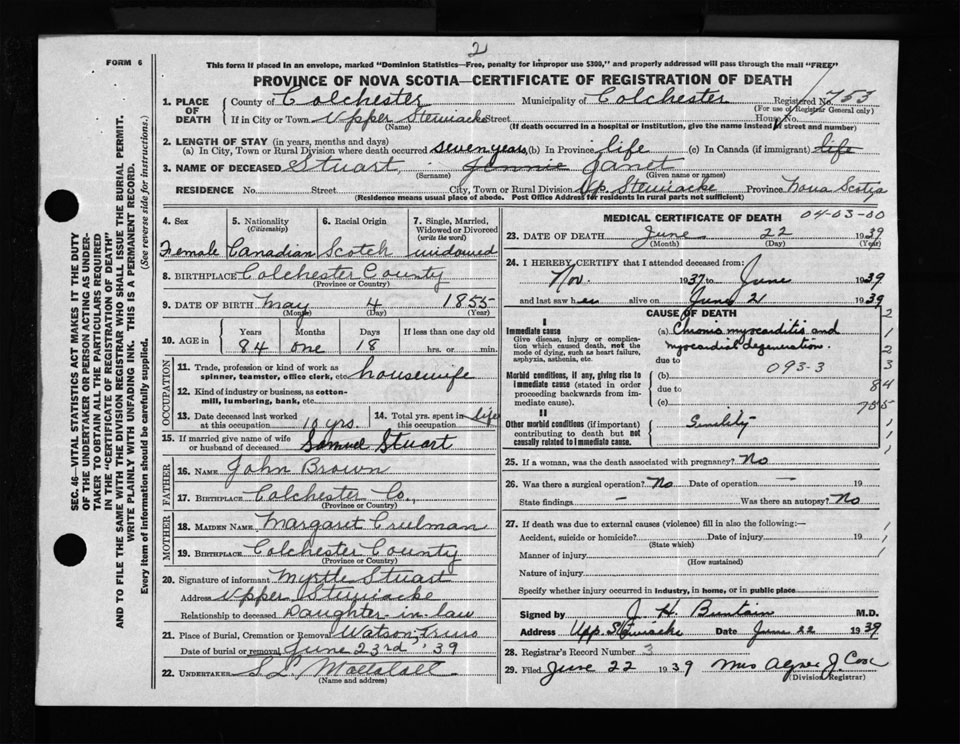 2
FORM 6
This form if placed in an envelope, marked "Dominion Statistics—Free, penalty for improper use $300," and properly addressed will pass through the mail "FREE"
PROVINCE OF NOVA SCOTIA—CERTIFICATE OF REGISTRATION OF DEATH
1. PLACE OF DEATH
County of Colchester Municipality of Colchester Registered No. 753
(For use of Registrar General only)
If in City or Town Upper Stewiacke Street House No.
(Name) (If death occurred in a hospital or institution, give the name instead of street and number)
2. LENGTH OF STAY (in years, months and days)
(a) In City, Town or Rural Division where death occurred seven years (b) In Province life (c) In Canada (if immigrant) life
3. NAME OF DECEASED Stuart, Jennie Janet
(Surname) (Given name or names)
RESIDENCE No. Street City, Town or Rural Division Up. Stewiacke Province Nova Scotia
(Residence means usual place of abede. Post Office Address for residents in rural parts not sufficient)
4. Sex
Female
5. Nationality
(Citizenship)
Canadian
6. Racial Origin
Scotch
7. Single, Married, Widowed or Divorced
(write the word)
widowed
8. BIRTHPLACE Colchester County
(Province or Country)
9. DATE OF BIRTH May 4 1855
(Month) (Day) (Year)
10. AGE in
Years Months Days If less than one day old
84 one 18 hrs. or min.
OCCUPATION
11. Trade, profession or kind of work as
spinner, teamster, office clerk, etc. housewife
12. Kind of industry or business, as cotton-
mill, lumbering, bank, etc.
13. Date deceased last worked
at this occupation 10 yrs.
14. Total yrs. spent in
this occupation life
15. If married give name of wife
or husband of deceased Samuel Stuart
FATHER
16. NAME John Brown
17. BIRTHPLACE Colchester Co.
(Province or Country)
MOTHER
18. MAIDEN NAME Margaret Creelman
19. BIRTHPLACE Colchester County
(Province or Country)
20. Signature of informant Myrtle Stuart
Address Upper Stewiacke
Relationship to deceased Daughter-in-law
21. Place of Burial, Cremation or Removal Watson, Truro
Date of burial or removal June 23rd '39
22. UNDERTAKER S. L.
(Name and address)
MEDICAL CERTIFICATE OF DEATH 04-03-00
23. DATE OF DEATH June 22 1939
(Month) (Day) (Year)
24. I HEREBY CERTIFY that I attended deceased from:
Nov. 1937 to June 1939
and last saw her alive on June 21 1939
CAUSE OF DEATH
I
Immediate cause
Give disease, injury or complica-
tion which caused death, not the
mode of dying, such as heart failure,
asphyxia, asthenia, etc.
(a) Chronic myocarditis and
myocardial degeneration.
due to
093-3
Morbid conditions, if any, giving rise to
immediate cause (stated in order
proceeding backwards from im-
mediate cause).
(b)
due to
(c)
II
Other morbid conditions (if important)
contributing to death but not
causally related to immediate cause.
Senility
2
1
2
3
84
755
25. If a woman, was the death associated with pregnancy? No
26. Was there a surgical operation? No Date of operation — 19
State findings — Was there an autopsy? No
27. If death was due to external causes (violence) fill in also the following:—
Accident, suicide or homicide? Date of injury 19
(State which)
Manner of injury
(How sustained)
Nature of injury
Specify whether injury occurred in industry, in home, or in public place
Signed by J. H. Buntain M.D.
Address Upp. Stewiacke Date June 22 1939
28. Registrar's Record Number 3
29. Filed June 22 1939 Mrs Agnes J. Cox
(Division Registrar)
SEC. 46—VITAL STATISTICS ACT MAKES IT THE DUTY
OF THE UNDERTAKER OR PERSON ACTING AS UNDER-
TAKER TO OBTAIN ALL THE PARTICULARS REQUIRED
IN THE "CERTIFICATE OF REGISTRATION OF DEATH"
AND TO FILE THE SAME WITH THE DIVISION REGISTRAR WHO SHALL ISSUE THE BURIAL PERMIT.
WRITE PLAINLY WITH UNFADING INK. THIS IS A PERMANENT RECORD.
Every item of information should be carefully supplied. (See reverse side for instructions.)